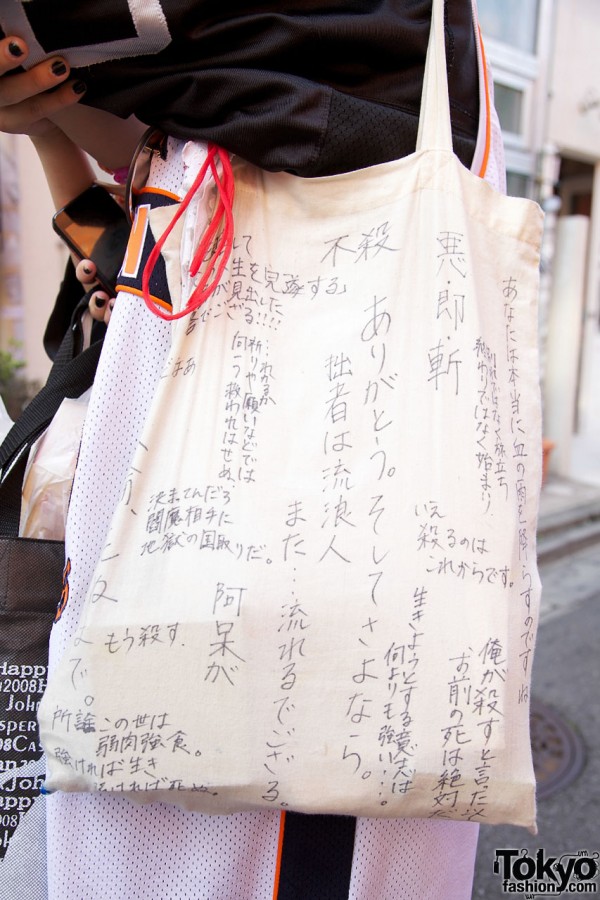 あなたは本当に血の雨を降らすのですね
別離ではなく旅立ち
終わりではなく始まり
悪・即・斬
いえ
殺るのは
これからです。
俺が殺すと言った以
お前の死は絶対だ
生きようとする意志は
何よりも強い…。
不殺
ありがとう。そしてさよなら。
拙者は流浪人
また…流れるでござる。
して
生を完遂する」
が見出した
でござる!!!!
祈りや願いなどでは
何一つ救われはせぬ、
決まてんだろ
閻魔相手に
地獄の国取りだ。
阿呆が
もう殺す.
まで。
所詮この世は
弱肉強食。
強ければ生き
ければ死ぬ
Happy
2008H
John
SPER
08CAS
John
Happy
2008
John
Tokyo
fashion.com